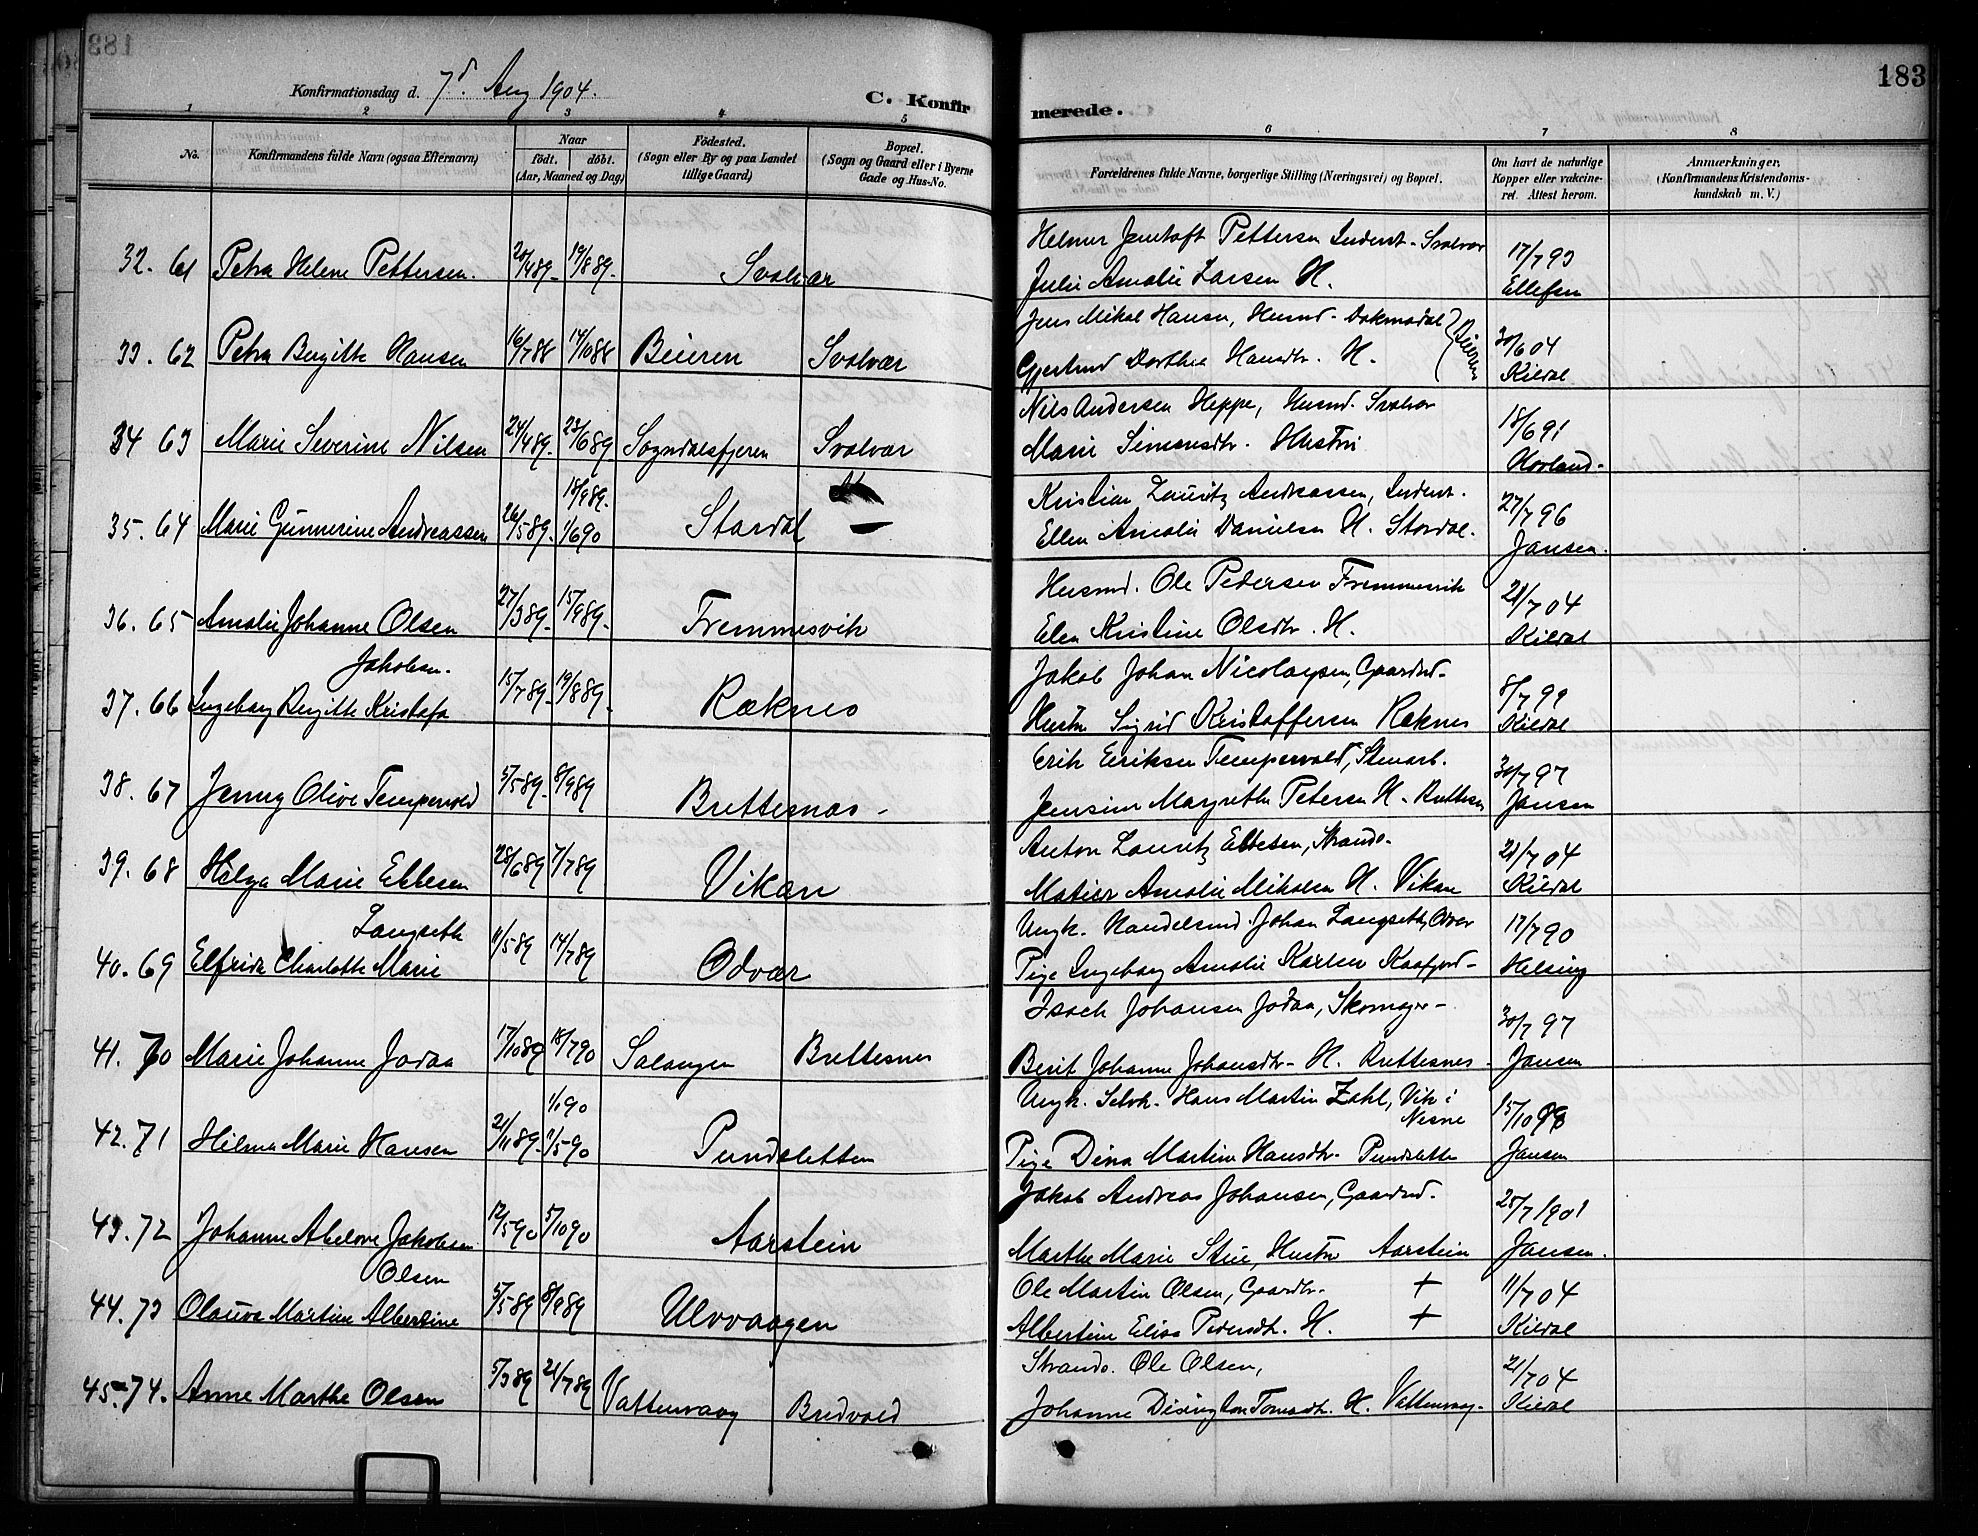 183
Konfirmationsdag d. 7d. Aug 1904.
C. Konfirmerede.
1 2 3 4 5 6 7 8
No.
Konfirmandens fulde Navn (ogsaa Efternavn)
Naar
födt. döbt.
(Aar, Maaned og Dag)
Födested.
(Sogn eller By og paa Landet
tillige Gaard)
Bopæl.
(Sogn og Gaard eller i Byerne
Gade og Hus-No.
Forældrenes fulde Navne, borgerlige Stilling (Næringsvei) og Bopæl.
Om havt de naturlige
Kopper eller vakcine-
ret. Attest herom.
Anmærkninger.
(Konfirmandens Kristendoms-
kundskab m. V.)
32. 61 Petra Helene Pettersen. 20/4 89. 19/8 89. Svolvær
Helmer Jentoft Pettersen Inderst. Svolvær
Julie Amalie Larsen H.
17/7 93
Ellefsen
33. 62 Petra Bergitte Hansen 16/7 88 14/10 88 Beieren Svolvær
Jens Mikal Hansen, Husmd. Dokmodal
Gjertrud Dorthea Hansdtr. H.
Beieren
30/6 04
Kildal
34 63 Marie Severine Nilsen 24/4 89. 23/6 89. Sogndalsfjeren Svolvær
Nils Andersen Heppe, Husmd. Svolvær
Marie Simonsdtr. Hustru
18/6 91
Horland.
35. 64 Marie Gunnerine Andreassen 26/5 89. 18/9 89. 1/6 90 Stordal
Kristian Lauritz Andreassen, Inderst.
Ellen Amalie Danielsen H. Stordal.
27/7 96
Jansen.
36. 65 Amalie Johanne Olsen 27/3 89. 15/9 89. Fremmesvik
Husmd. Ole Pedersen Fremmesvik
Elen Kristine Olsdtr. H.
21/7 04
Kildal
Jakobsen.
37. 66 Ingeborg Bergitte Kristofa 15/7 89. 19/8 89. Ræknes
Jakob Johan Nicolaysen, Gaardmd.
Hustru Sigrid Kristoffersen Ræknes
8/7 99
Kildal
38. 67 Jenny Olive Tempervold 5/5 89. 8/9 89 Brettesnæs
Erik Eriksen Tempervold, Stenarb.
Jensine Margrethe Petersen H. Brettesn
30/7 97
Jansen
39. 68 Helga Marie Ebbesen 28/6 89 7/7 89 Vikan
Anton Lauritz Ebbesen, Strands.
Amalie Mikalsen H. Vikan
21/7 04
Kildal
Langseth
40. 69 Elfrida Charlotte Marie 11/5 89 14/7 89 Odvær
Ungk. Handelsmd. Johan Langseth, Odvær
Pige Ingeborg Amalie Karlsen Kaafjord
17/7 90
Helsing
41. 70 Marie Johanne Jodaa 17/10 89 18/7 90 Salangen Brettesnes
Isach Johansen Jodaa, Skomager
Berit Johanne Johansdtr. H. Brettesnes.
30/7 97
Jansen
42. 71 Hilma Marie Hansen 21/11 89. 1/1 90 1/5 90 Pundsletten
Ungk. Selvk. Hans Martin Zahl, Vik i
Nesne
Pige Dina Martine Hansdtr. Pundslette
15/10 98
Jansen
43. 72 Johanne Abelone Jakobsen 12/5 90 5/10 90 Aarstein
Jakob Andreas Johansen, Gaardmd.
Marthe Marie Stue, Hustru Aarstein
25/7 1901
Jansen.
Olsen
44. 73 Olausa Martine Albertine 5/5 89 8/9 89 Ulvvaagen
Ole Martin Olsen, Gaardbr. +
Albertine Elisa Pedersdtr. H. +
11/7 04
Kildal
45. 74. Anne Marthe Olsen 5/3 89 21/7 89 Vattervaag Bredvold
Strands. Ole Olsen,
Johanne Disington Tomasdtr. H. Vattervaag.
21/7 04
Kildal